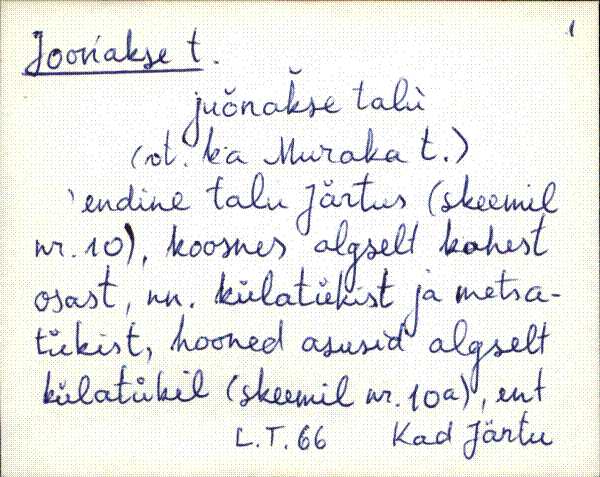 1
Joonakse t.
juo̬nakše talù
(vt. ka Muraka t.)
'endine talu Järtus (skeemil
nr. 10), koosnes algselt kahest
osast, nn. külatükist ja metsa-
tükist, hooned asusid algselt
külatükil (skeemil nr. 10a), ent
L.T. 66 Kad Järtu